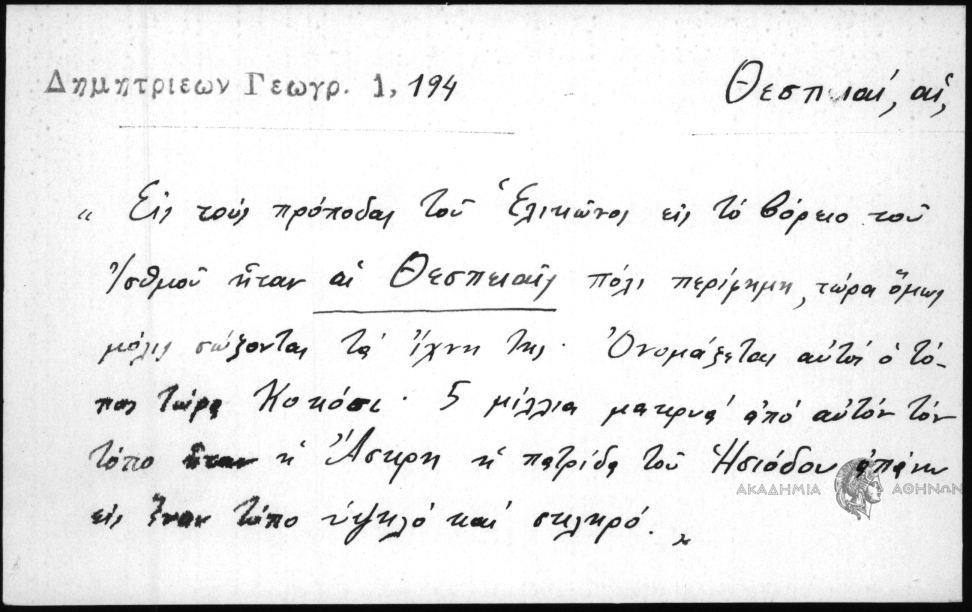 Δημητριεων Γεωγρ. 1, 194
Θεσπειαί, αἱ,
" Εἰς τοὺς πρόποδας τοῦ Ἑλικῶνος εἰς τὸ βόρειο τοῦ
Ἰσθμοῦ ἦταν αἱ Θεσπειαὶ πόλι περίφημη, τώρα ὅμως
μόλις σώζονται τὰ ἴχνη της. Ὀνομάζεται αὐτὸς ὁ τό-
πος τώρα Κοκόσι. 5 μίλλια μακρυὰ ἀπὸ αὐτὸν τὸν
τόπο ἦταν ἡ Ἄσκρη ἡ πατρίδα τοῦ Ἡσιόδου ἀπάνω
εἰς ἕναν τόπο ὑψηλὸ καὶ σκληρό. "
ΑΚΑΔΗΜΙΑ ΑΘΗΝΩΝ